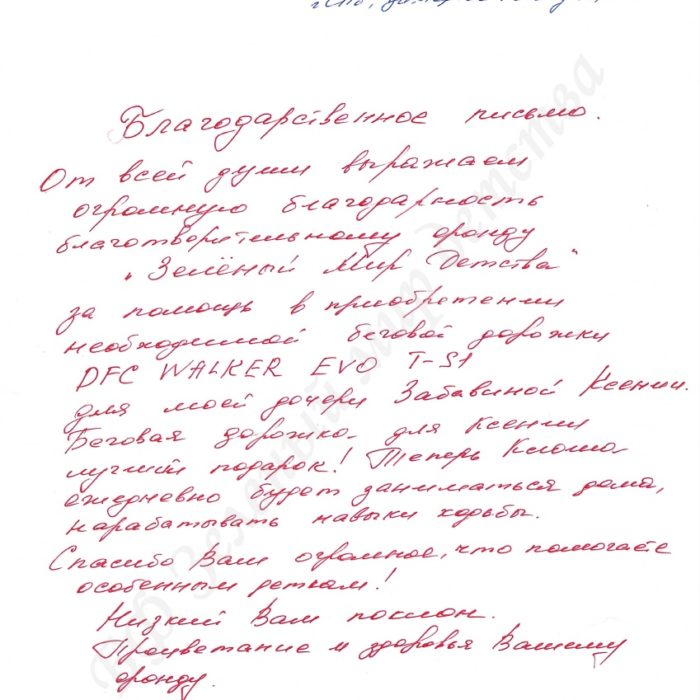 Благодарственное письмо.
От всей души выражаем
огромную благодарность
благотворительному фонду
"Зелёный Мир Детства"
за помощь в приобретении
необходимой беговой дорожки
DFC WALKER EVO T-S1
для моей дочери Забавиной Ксении.
Беговая дорожка для Ксении
лучший подарок! Теперь Ксюша
ежедневно будет заниматься дома,
нарабатывать навыки ходьбы.
Спасибо Вам огромное, что помогаете
особенным деткам!
Низкий Вам поклон.
Процветание и здоровья Вашему
фонду.
Зеленый мир детства